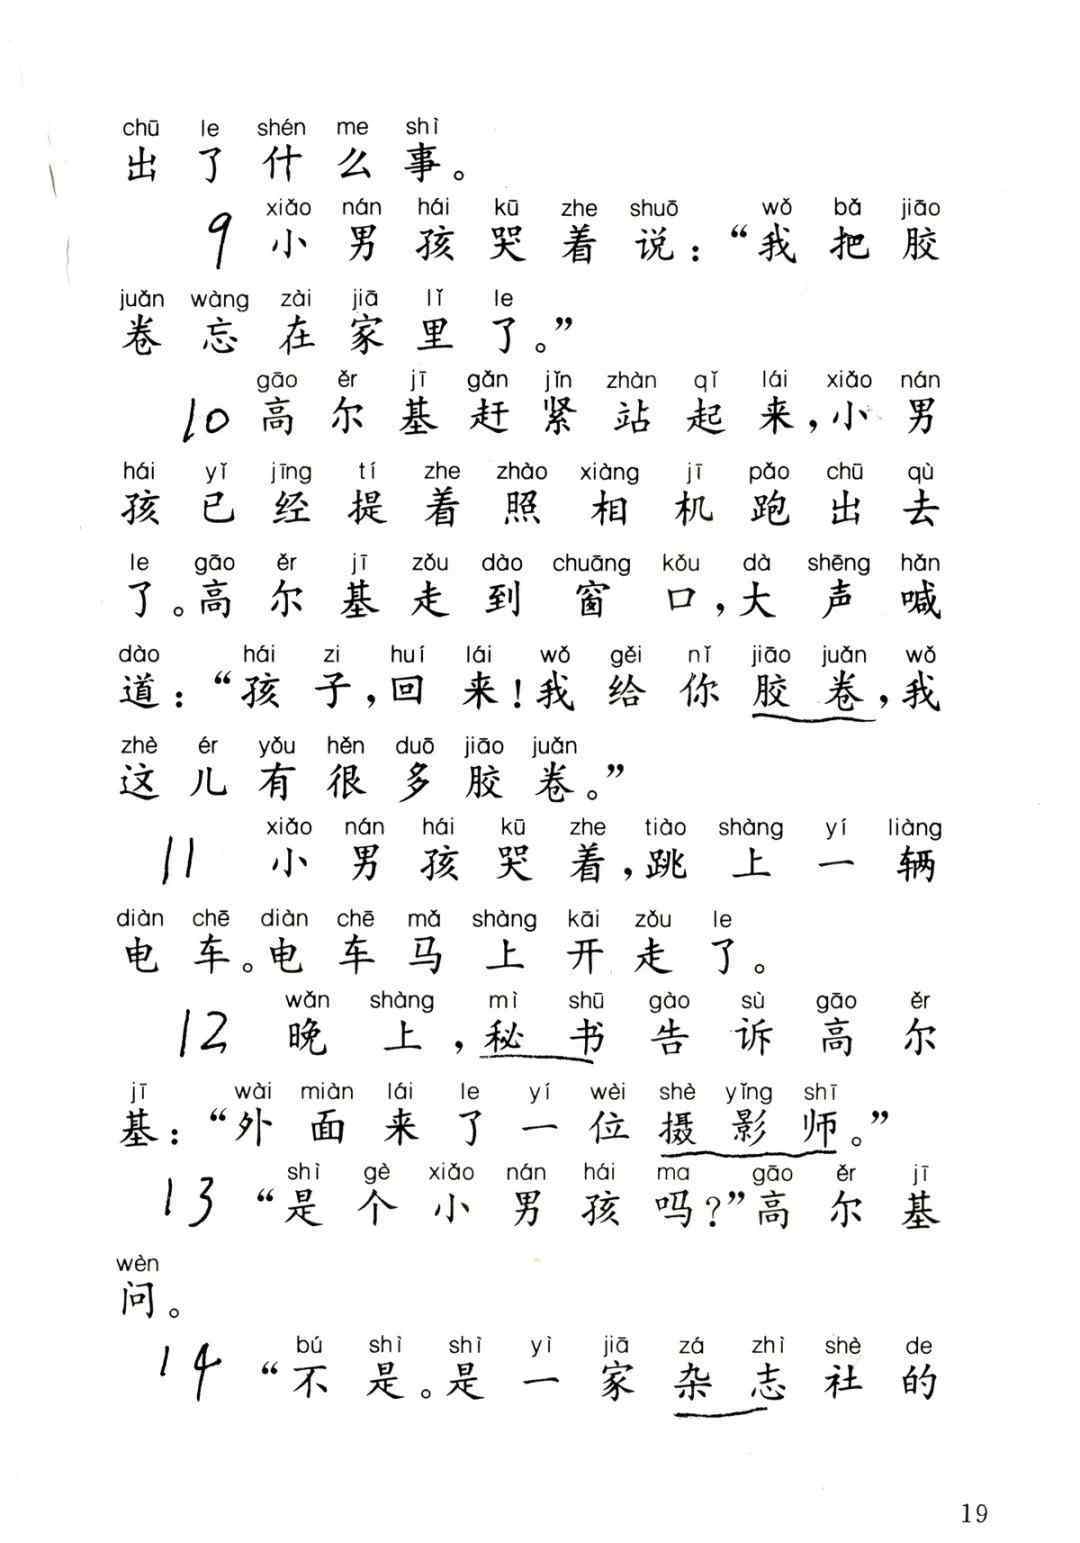 chū le shén me shì
出了什么事。
xiǎo nán hái kū zhe shuō wǒ bǎ jiāo
9 小男孩哭着说：“我把胶
juǎn wàng zài jiā lǐ le
卷忘在家里了。”
gāo ěr jī gǎn jǐn zhàn qǐ lái xiǎo nán
10 高尔基赶紧站起来，小男
hái yǐ jīng tí zhe zhào xiàng jī pǎo chū qù
孩已经提着照相机跑出去
le gāo ěr jī zǒu dào chuāng kǒu dà shēng hǎn
了。高尔基走到窗口，大声喊
dào hái zi huí lái wǒ gěi nǐ jiāo juǎn wǒ
道：“孩子，回来！我给你胶卷，我
zhè ér yǒu hěn duō jiāo juǎn
这儿有很多胶卷。”
xiǎo nán hái kū zhe tiào shàng yí liàng
11 小男孩哭着，跳上一辆
diàn chē diàn chē mǎ shàng kāi zǒu le
电车。电车马上开走了。
wǎn shàng mì shū gào sù gāo ěr
12 晚上，秘书告诉高尔
jī wài miàn lái le yí wèi shè yǐng shī
基：“外面来了一位摄影师。”
shì gè xiǎo nán hái ma gāo ěr jī
13 “是个小男孩吗？”高尔基
wèn
问。
bú shì shì yì jiā zá zhì shè de
14 “不是。是一家杂志社的
19